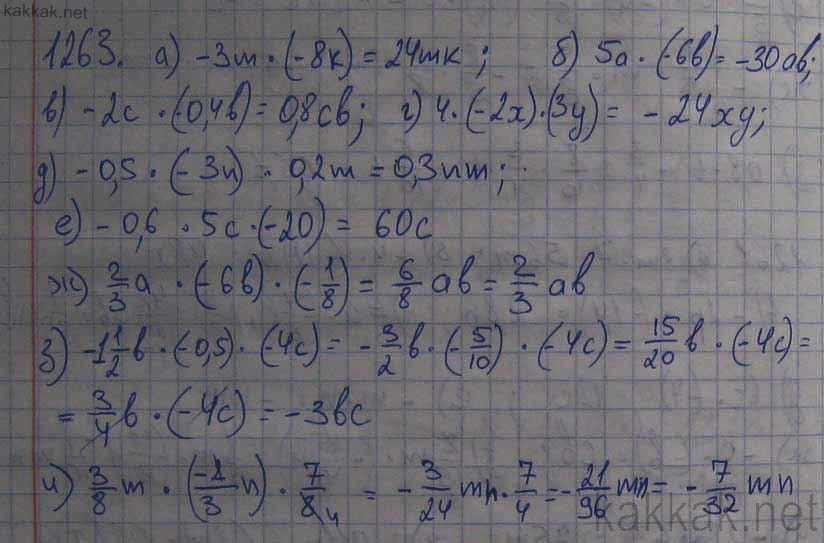 kakkak.net
1263. а) -3m · (-8k) = 24mk; б) 5a · (-6b) = -30ab;
в) -2c · (-0,4b) = 0,8cb; г) 4 · (-2x) · (3y) = -24xy;
д) -0,5 · (-3n) · 0,2m = 0,3nm;
е) -0,6 · 5c · (-20) = 60c
ж) 2/3 a · (-6b) · (-1/8) = 6/8 ab = 2/3 ab
з) -1 1/2 b · (-0,5) · (-4c) = -3/2 b · (-5/10) · (-4c) = 15/20 b · (-4c) =
= 3/4 b · (-4c) = -3bc
и) 3/8 m · (-1/3 n) · 7/8 4 = -3/24 mn · 7/4 = -21/96 mn = -7/32 mn
kakkak.net